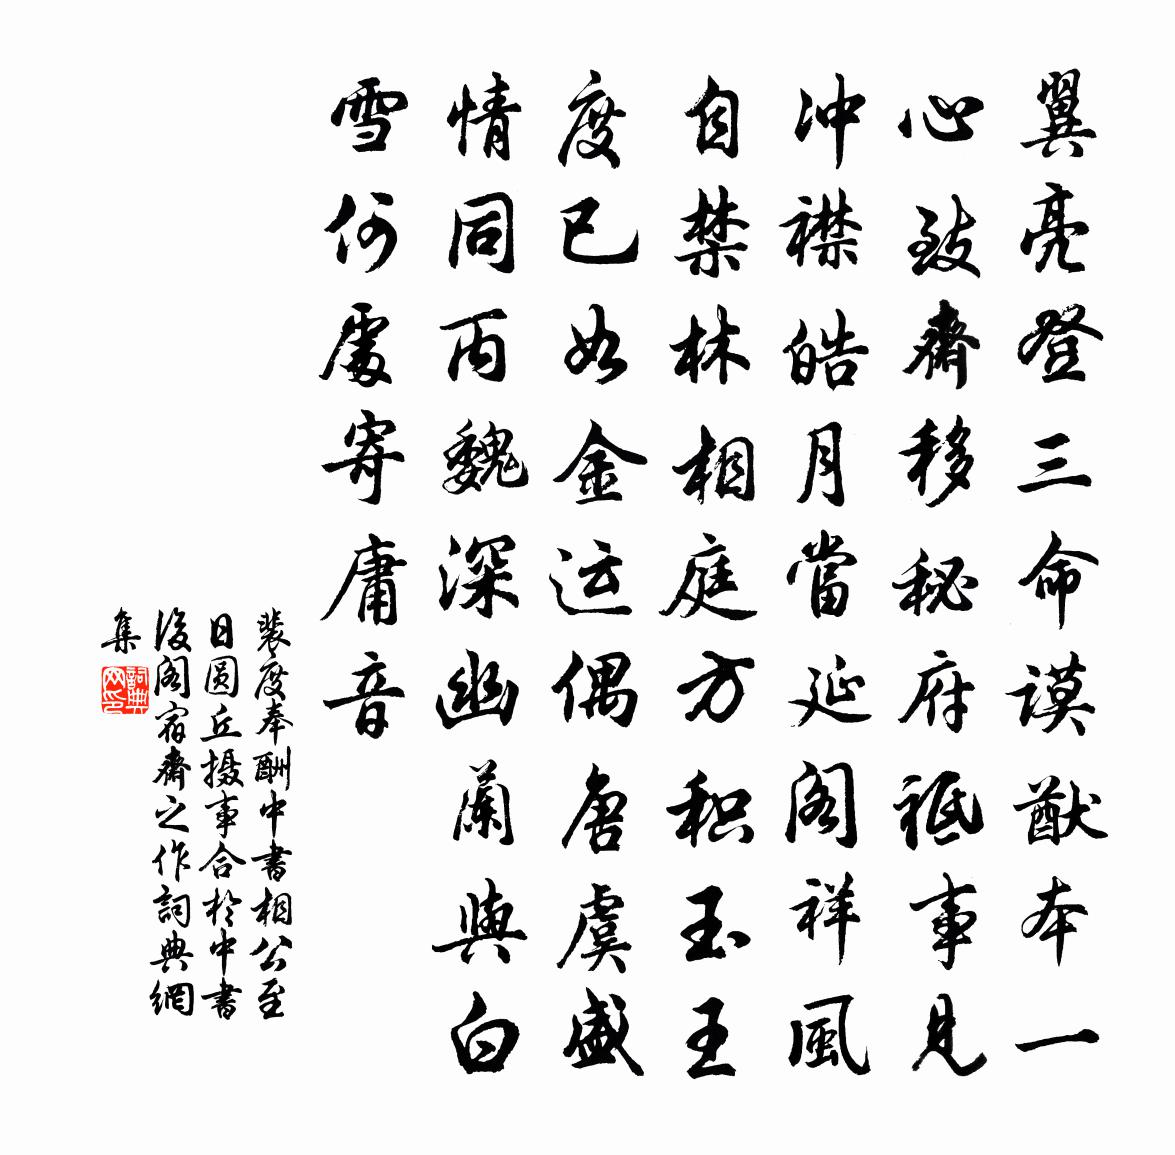 翼亮登三命謨猷本一
心致齋移秘府祗事見
冲襟皓月當延閣祥風
自禁林相庭方积玉王
度已如金运偶唐虞盛
情同丙魏深幽蘭與白
雪何處寄庸音
裴度奉酬中書相公至
日圆丘摄事合於中書
後閣宿齋之作詞典網
集
詞典網印